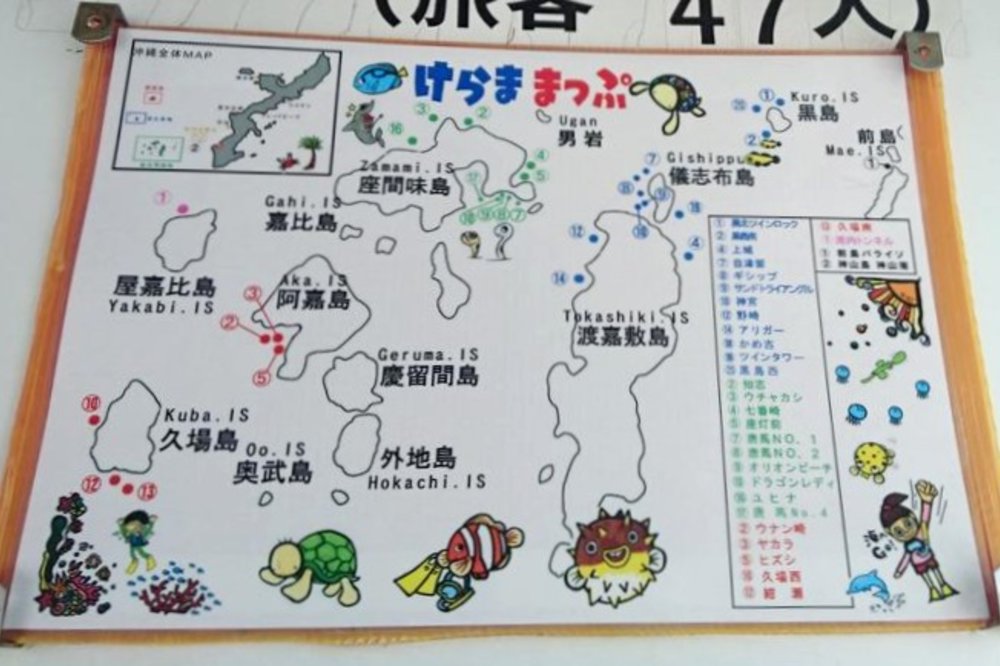 (旅客 47人)
沖縄全体MAP
けらま まっぷ
Ugan
男岩
Kuro.IS
黒島
前島
Mae.IS
Zamami.IS
座間味島
Gishippu
儀志布島
Gahi.IS
嘉比島
屋嘉比島
Yakabi.IS
Aka.IS
阿嘉島
Tokashiki.IS
渡嘉敷島
Geruma.IS
慶留間島
Kuba.IS
久場島
Oo.IS
奥武島
外地島
Hokachi.IS
④ 上城
⑦ 自津留
⑧ ギシップ
⑨ サンドトライアングル
⑩ 神宮
⑫ 野崎
⑭ アリガー
ツインタワー
黒島西
② 知志
③ ウチャカシ
④ 七番崎
⑤ 座灯前
⑦ 唐馬NO. 1
⑧ 唐馬NO. 2
⑨ オリオンビーチ
⑩ ドラゴンレディ
⑯ ユヒナ
⑰ 唐 馬No.4
② ウナン崎
③ ヤカラ
⑤ ヒズシ
⑩ 久場西
⑬ 久場南
① 湾内トンネル